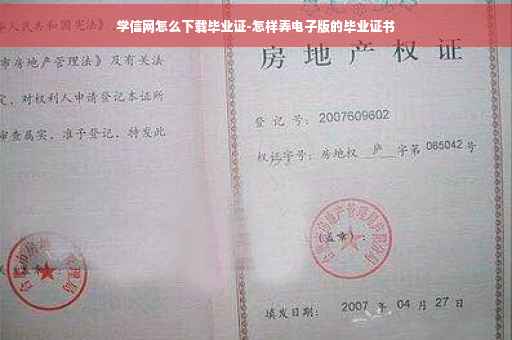 学信网怎么下载毕业证-怎样弄电子版的毕业证书
人民共和国宪法》
市房地产管理法》及有关法
定，对权利人申请登记本证所
审查属实，准予登记，特发此
房地产权证
登记号：2007609602
权证字号：房地权 庐 字第 065042 号
(盖章)：
填发日期：2007 年 04 月 27 日